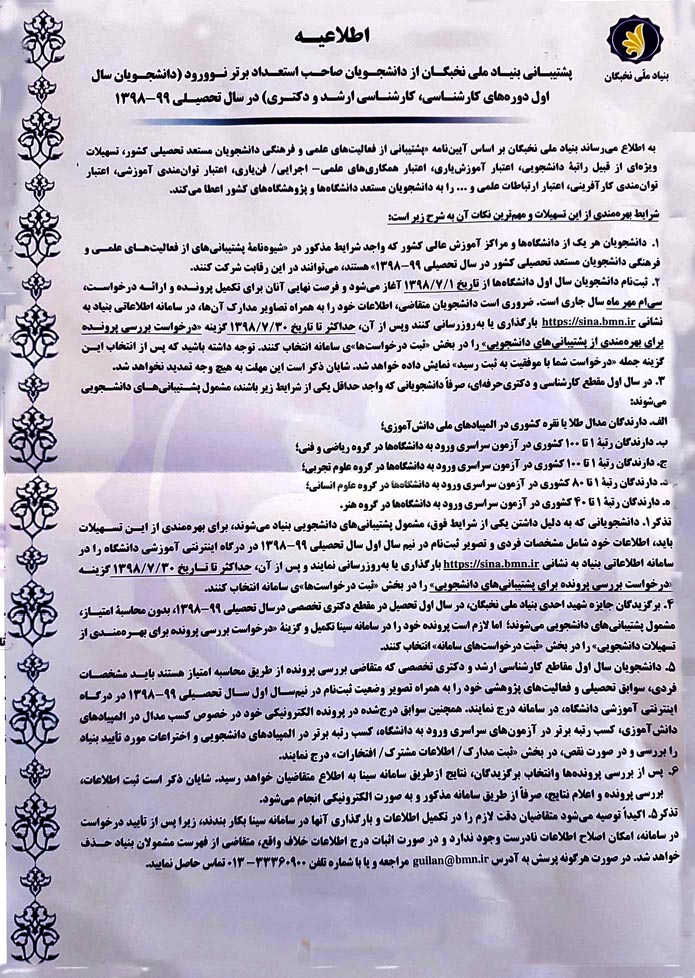 اطلاعیه
بنیاد ملّی نخبگان
پشتیبانی بنیاد ملی نخبگان از دانشجویان صاحب استعداد برتر نوورود (دانشجویان سال
اول دوره‌های کارشناسی، کارشناسی ارشد و دکتری) در سال تحصیلی ۹۹-۱۳۹۸
به اطلاع می‌رساند بنیاد ملی نخبگان بر اساس آیین‌نامه «پشتیبانی از فعالیت‌های علمی و فرهنگی دانشجویان مستعد تحصیلی کشور، تسهیلات
ویژه‌ای از قبیل راتبهٔ دانشجویی، اعتبار آموزش‌یاری، اعتبار همکاری‌های علمی- اجرایی/ فن‌یاری، اعتبار توان‌مندی آموزشی، اعتبار
توان‌مندی کارآفرینی، اعتبار ارتباطات علمی و ... را به دانشجویان مستعد دانشگاه‌ها و پژوهشگاه‌های کشور اعطا می‌کند.
شرایط بهره‌مندی از این تسهیلات و مهم‌ترین نکات آن به شرح زیر است:
۱. دانشجویان هر یک از دانشگاه‌ها و مراکز آموزش عالی کشور که واجد شرایط مذکور در «شیوه‌نامهٔ پشتیبانی‌های از فعالیت‌های علمی و
فرهنگی دانشجویان مستعد تحصیلی کشور در سال تحصیلی ۹۹-۱۳۹۸» هستند، می‌توانند در این رقابت شرکت کنند.
۲. ثبت‌نام دانشجویان سال اول دانشگاه‌ها از تاریخ ۱۳۹۸/۷/۱ آغاز می‌شود و فرصت نهایی آنان برای تکمیل پرونده و ارائه درخواست،
سی‌ام مهر ماه سال جاری است. ضروری است دانشجویان متقاضی، اطلاعات خود را به همراه تصاویر مدارک آن‌ها، در سامانه اطلاعاتی بنیاد به
نشانی https://sina.bmn.ir بارگذاری یا به‌روزرسانی کنند وپس از آن، حداکثر تا تاریخ ۱۳۹۸/۷/۳۰ گزینه «درخواست بررسی پرونده
برای بهره‌مندی از پشتیبانی‌های دانشجویی» را در بخش «ثبت درخواست‌ها»ی سامانه انتخاب کنند. توجه داشته باشید که پس از انتخاب این
گزینه جمله «درخواست شما با موفقیت به ثبت رسید» نمایش داده خواهد شد. شایان ذکر است این مهلت به هیچ وجه تمدید نخواهد شد.
۳. در سال اول مقطع کارشناسی و دکتری‌حرفه‌ای، صرفاً دانشجویانی که واجد حداقل یکی از شرایط زیر باشند، مشمول پشتیبانی‌های دانشجویی
می‌شوند:
الف. دارندگان مدال طلا یا نقره کشوری در المپیادهای ملی دانش‌آموزی؛
ب. دارندگان رتبهٔ ۱ تا ۱۰۰ کشوری در آزمون سراسری ورود به دانشگاه‌ها در گروه ریاضی و فنی؛
ج. دارندگان رتبهٔ ۱ تا ۱۰۰ کشوری در آزمون سراسری ورود به دانشگاه‌ها در گروه علوم تجربی؛
د. دارندگان رتبهٔ ۱ تا ۸۰ کشوری در آزمون سراسری ورود به دانشگاه‌ها در گروه علوم انسانی؛
ه. دارندگان رتبهٔ ۱ تا ۴۰ کشوری در آزمون سراسری ورود به دانشگاه‌ها در گروه هنر.
تذکر۱. دانشجویانی که به دلیل داشتن یکی از شرایط فوق، مشمول پشتیبانی‌های دانشجویی بنیاد می‌شوند، برای بهره‌مندی از این تسهیلات
باید، اطلاعات خود شامل مشخصات فردی و تصویر ثبت‌نام در نیم سال اول سال تحصیلی ۹۹-۱۳۹۸ در درگاه اینترنتی آموزشی دانشگاه را در
سامانه اطلاعاتی بنیاد به نشانی https://sina.bmn.ir بارگذاری یا به‌روزرسانی نمایند و پس از آن، حداکثر تا تاریخ ۱۳۹۸/۷/۳۰ گزینه
«درخواست بررسی پرونده برای پشتیبانی‌های دانشجویی» را در بخش «ثبت درخواست‌ها»ی سامانه انتخاب کنند.
۴. برگزیدگان جایزه شهید احدی بنیاد ملی نخبگان، در سال اول تحصیل در مقطع دکتری تخصصی درسال تحصیلی ۹۹-۱۳۹۸، بدون محاسبهٔ امتیاز،
مشمول پشتیبانی‌های دانشجویی می‌شوند؛ اما لازم است پرونده خود را در سامانه سینا تکمیل و گزینهٔ «درخواست بررسی پرونده برای بهره‌مندی از
تسهیلات دانشجویی» را در بخش «ثبت درخواست‌های سامانه» انتخاب کنند.
۵. دانشجویان سال اول مقاطع کارشناسی ارشد و دکتری تخصصی که متقاضی بررسی پرونده از طریق محاسبه امتیاز هستند باید مشخصات
فردی، سوابق تحصیلی و فعالیت‌های پژوهشی خود را به همراه تصویر وضعیت ثبت‌نام در نیم‌سال اول سال تحصیلی ۹۹-۱۳۹۸ در درگاه
اینترنتی آموزشی دانشگاه، در سامانه درج نمایند. همچنین سوابق درج‌شده در پرونده الکترونیکی خود در خصوص کسب مدال در المپیادهای
دانش‌آموزی، کسب رتبه برتر در آزمون‌های سراسری ورود به دانشگاه، کسب رتبه برتر در المپیادهای دانشجویی و اختراعات مورد تأیید بنیاد
را بررسی و در صورت نقص، در بخش «ثبت مدارک/ اطلاعات مشترک/ افتخارات» درج نمایند.
۶. پس از بررسی پرونده‌ها وانتخاب برگزیدگان، نتایج ازطریق سامانه سینا به اطلاع متقاضیان خواهد رسید. شایان ذکر است ثبت اطلاعات،
بررسی پرونده و اعلام نتایج، صرفاً از طریق سامانه مذکور و به صورت الکترونیکی انجام می‌شود.
تذکر۵. اکیداً توصیه می‌شود متقاضیان دقت لازم را در تکمیل اطلاعات و بارگذاری آنها در سامانه سینا بکار بندند، زیرا پس از تأیید درخواست
در سامانه، امکان اصلاح اطلاعات نادرست وجود ندارد و در صورت اثبات درج اطلاعات خلاف واقع، متقاضی از فهرست مشمولان بنیاد حذف
خواهد شد. در صورت هرگونه پرسش به آدرس guilan@bmn.ir مراجعه و یا با شماره تلفن ۳۳۳۶۰۹۰۰-۰۱۳ تماس حاصل نمایید.